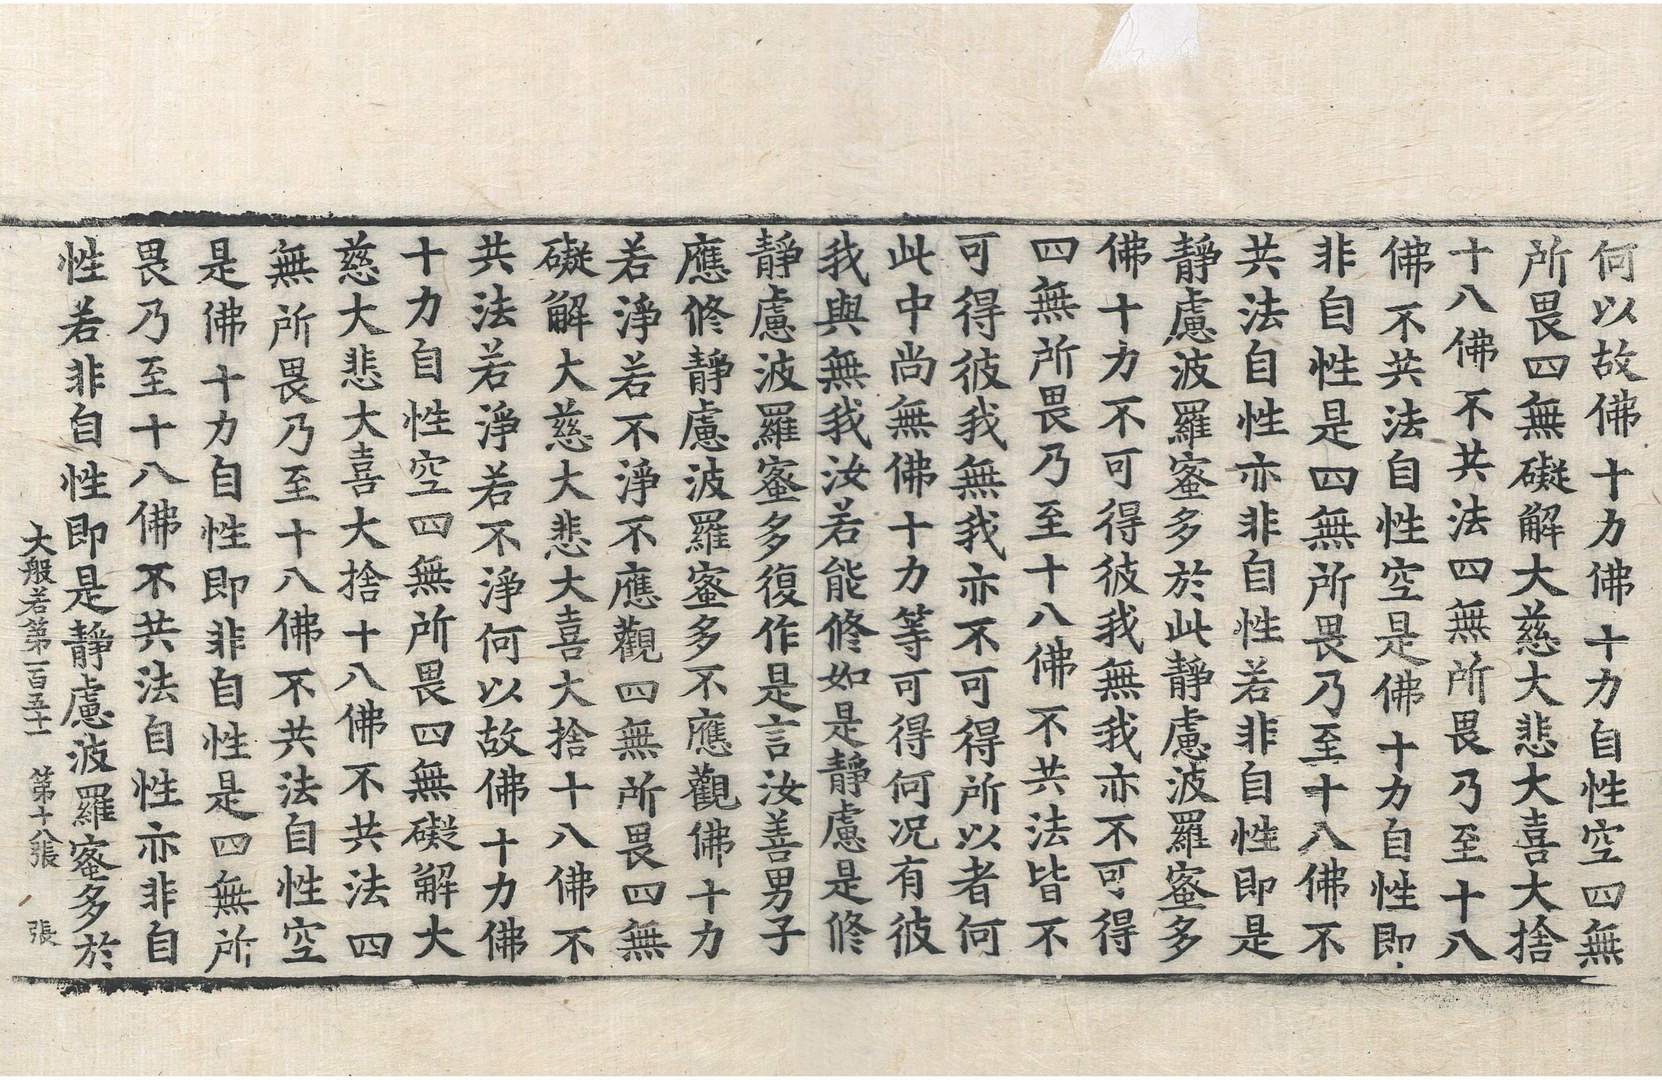 何以故佛十力佛十力自性空四無
所畏四無礙解大慈大悲大喜大捨
十八佛不共法四無所畏乃至十八
佛不共法自性空是佛十力自性即
非自性是四無所畏乃至十八佛不
共法自性亦非自性若非自性即是
靜慮波羅蜜多於此靜慮波羅蜜多
佛十力不可得彼我無我亦不可得
四無所畏乃至十八佛不共法皆不
可得彼我無我亦不可得所以者何
此中尚無佛十力等可得何况有彼
我與無我汝若能修如是靜慮是修
靜慮波羅蜜多復作是言汝善男子
應修靜慮波羅蜜多不應觀佛十力
若淨若不淨不應觀四無所畏四無
礙解大慈大悲大喜大捨十八佛不
共法若淨若不淨何以故佛十力佛
十力自性空四無所畏四無礙解大
慈大悲大喜大捨十八佛不共法四
無所畏乃至十八佛不共法自性空
是佛十力自性即非自性是四無所
畏乃至十八佛不共法自性亦非自
性若非自性即是靜慮波羅蜜多於
大般若第一百五十一 第十八張 張